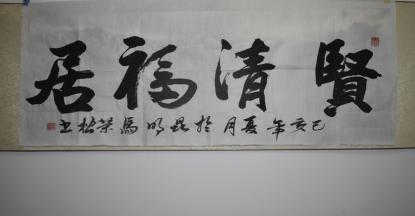 賢清福居
己亥年夏月於昆明馬榮松書